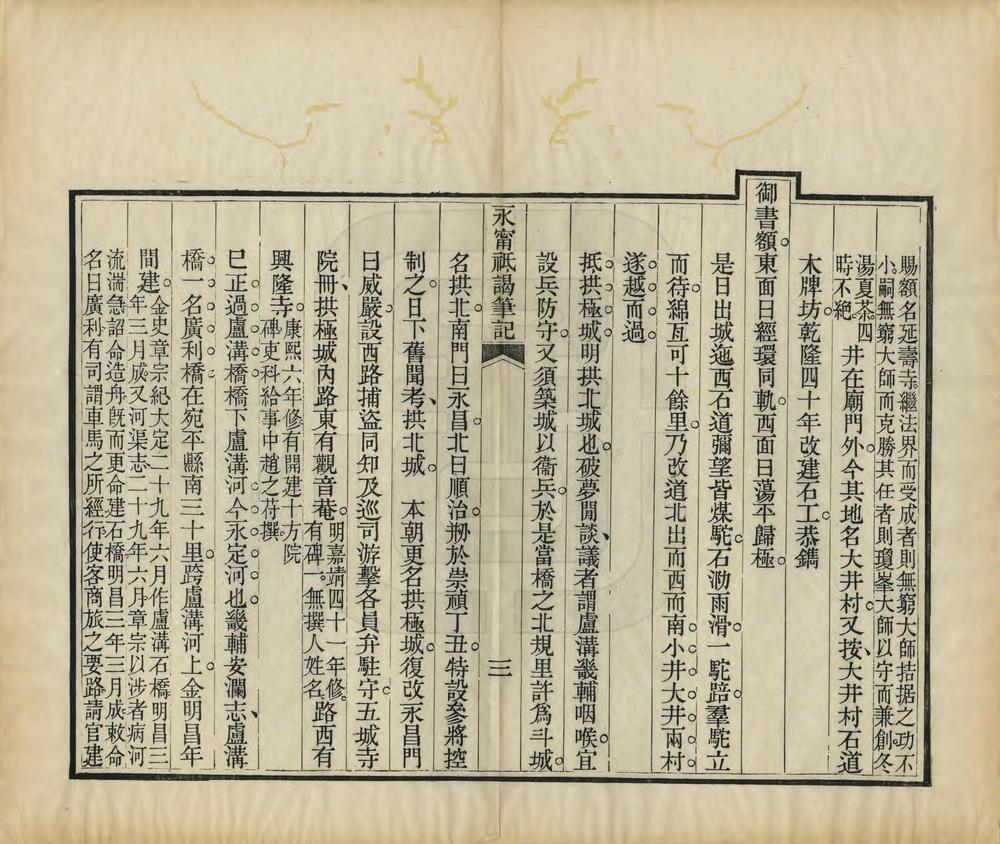 賜額名延壽寺繼法界而受成者則無窮大師拮据之功不
小嗣無窮大師而克勝其任者則瓊峯大師以守而兼創冬
湯夏茶四
時不絶。井在廟門外。今其地名大井村。又按、大井村石道
木牌坊。乾隆四十年改建石工。恭鐫
御書額。東面曰經環同軌。西面曰蕩平歸極。
是日出城。迤西石道。彌望皆煤駝。石泐雨滑。一駝踣。羣駝立
而待。綿亙可十餘里。乃改道北出而西而南。小井大井兩村。
遂越而過。
抵拱極城。明拱北城也。破夢閒談、議者謂盧溝畿輔咽喉。宜
設兵防守。又須築城以衞兵。於是當橋之北。規里許爲斗城。
永甯祇謁筆記
三
名拱北。南門曰永昌。北曰順治。剏於崇禎丁丑。特設參將控
制之。日下舊聞考、拱北城。 本朝更名拱極城。復改永昌門
曰威嚴。設西路捕盜同知及巡司游擊各員弁駐守。五城寺
院、冊拱極城內路東有觀音菴。明嘉靖四十一年修。
有碑一。無撰人姓名。路西有
興隆寺。康熙六年修。有開建十方院
碑。吏科給事中趙之符撰。
巳正過盧溝橋。橋下盧溝河。今永定河也。畿輔安瀾志、盧溝
橋一名廣利橋。在宛平縣南三十里。跨盧溝河上。金明昌年
間建。金史章宗紀大定二十九年六月作盧溝石橋明昌三
年三月成。又河渠志二十九年六月章宗以涉者病河
流湍急詔命造舟旣而更命建石橋明昌三年三月成敕命
名曰廣利。有司謂車馬之所經行使客商旅之要路請官建